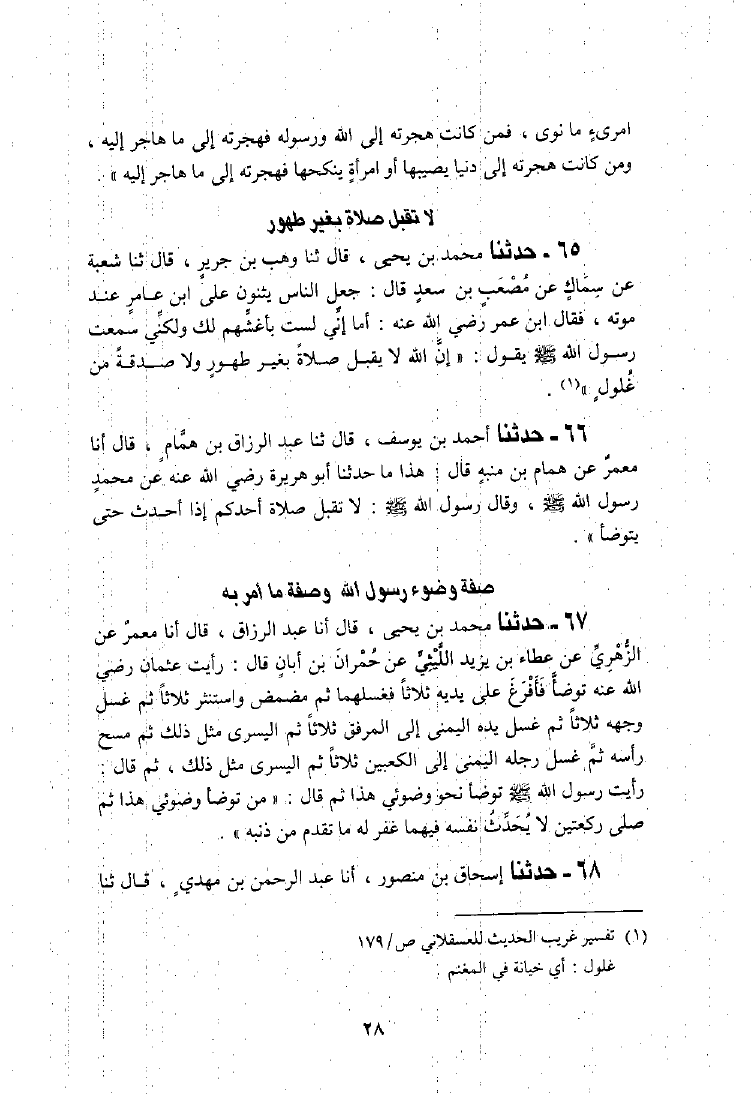 امرىءٍ ما نوى ، فمن كانت هجرته إلى الله ورسوله فهجرته إلى ما هاجر إليه ،
ومن كانت هجرته إلى دنيا يصيبها أو امرأةٍ ينكحها فهجرته إلى ما هاجر إليه » .
لا تقبل صلاة بغير طهور
٦٥ ـ حدثنا محمد بن يحيى ، قال ثنا وهب بن جريرٍ ، قال ثنا شعبة
عن سِماكٍ عن مُصْعَبٍ بن سعدٍ قال : جعل الناس يثنون على ابن عـامرٍ عنـد
موته ، فقال ابن عمر رضي الله عنه : أما إنِّي لست بأغشِّهم لك ولكنِّي سمعت
رسـول الله ﷺ يقـول : « إنَّ الله لا يقبـل صـلاةً بغيـر طهـورٍ ولا صـدقـةً من
غُلولٍ »(١) .
٦٦ ـ حدثنا أحمد بن يوسف ، قال ثنا عبد الرزاق بن همَّامٍ ، قال أنا
معمرٌ عن همام بن منبهٍ قال : هذا ما حدثنا أبو هريرة رضي الله عنه عن محمدٍ
رسول الله ﷺ ، وقال رسول الله ﷺ : لا تقبل صلاة أحدكم إذا أحـدث حتى
يتوضأ » .
صفة وضوء رسول الله وصفة ما أمر به
٦٧ ـ حدثنا محمد بن يحيى ، قال أنا عبد الرزاق ، قال أنا معمرٌ عن
الزُّهْرِيِّ عن عطاء بن يزيد اللَّيْثِيِّ عن حُمْرانَ بن أبانٍ قال : رأيت عثمان رضي
الله عنه توضأَ فَأَفْرَغَ على يديه ثلاثاً فغسلهما ثم مضمض واستنثر ثلاثاً ثم غسل
وجهه ثلاثاً ثم غسل يده اليمنى إلى المرفق ثلاثاً ثم اليسرى مثل ذلك ثم مسح
رأسه ثمَّ غسل رجله اليمنى إلى الكعبين ثلاثاً ثم اليسرى مثل ذلك ، ثم قال :
رأيت رسول الله ﷺ توضأ نحو وضوئي هذا ثم قال : « من توضأ وضوئي هذا ثم
صلى ركعتين لا يُحَدِّثُ نفسه فيهما غفر له ما تقدم من ذنبه » .
٦٨ ـ حدثنا إسحاق بن منصور ، أنا عبد الرحمن بن مهديٍ ، قـال ثنا
(١) تفسير غريب الحديث للعسقلاني ص/١٧٩
غلول : أي خيانة في المغنم .
٢٨